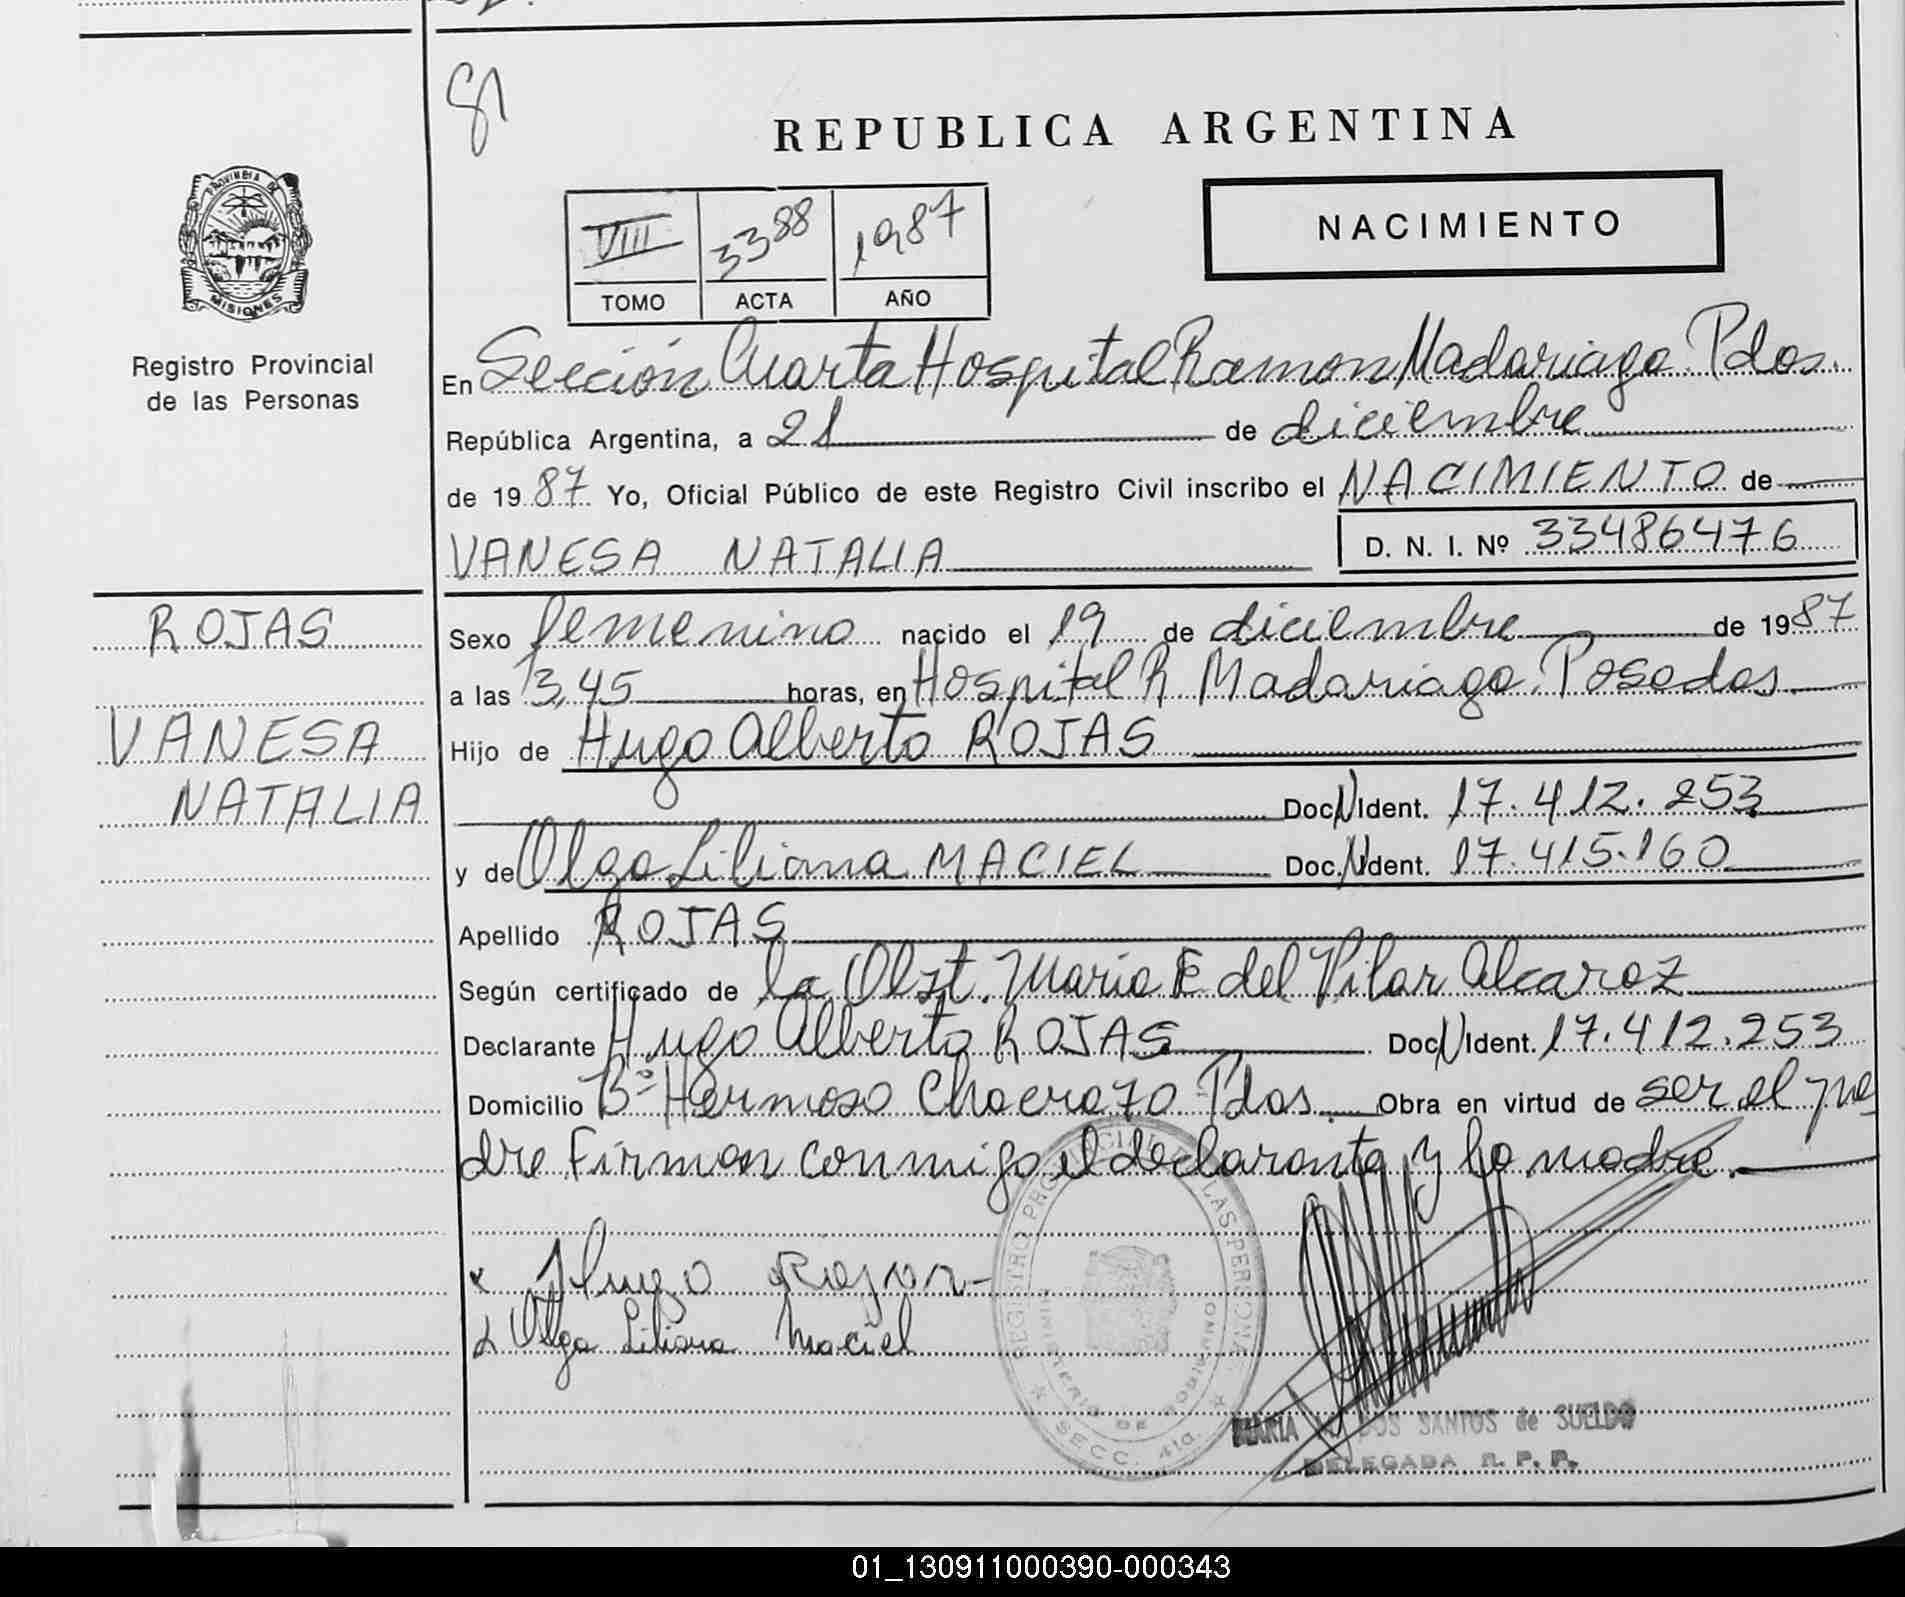 81
REPUBLICA ARGENTINA
PROVINCIA DE
MISIONES
Registro Provincial
de las Personas
VIII 3388 1987
TOMO ACTA AÑO
NACIMIENTO
En Sección Cuarta Hospital Ramon Madariaga. Pdas.
República Argentina, a 21 de diciembre
de 1987 Yo, Oficial Público de este Registro Civil inscribo el NACIMIENTO de
VANESA NATALIA
D. N. I. Nº 33486476
ROJAS
VANESA
NATALIA
Sexo femenino nacido el 19 de diciembre de 1987
a las 13,45 horas, en Hospital R Madariaga. Posadas
Hijo de Hugo Alberto ROJAS
Doc N Ident. 17.412.253
y de Olga Liliana MACIEL Doc. N Ident. 17.415.160
Apellido ROJAS
Según certificado de la Obst. Maria E del Pilar Alcaraz
Declarante Hugo Alberto ROJAS Doc N Ident. 17.412.253
Domicilio Bº Hermoso Chacrazo Pdas. Obra en virtud de ser el pa
dre Firman conmigo el declarante y la madre.
x Hugo Rojas
x Olga Liliana Maciel
REGISTRO PROVINCIAL DE LAS PERSONAS
MINISTERIO DE GOBIERNO
SECC. 4ta.
MARIA DOS SANTOS de SUELDO
DELEGADA R. P. P.
01_130911000390-000343